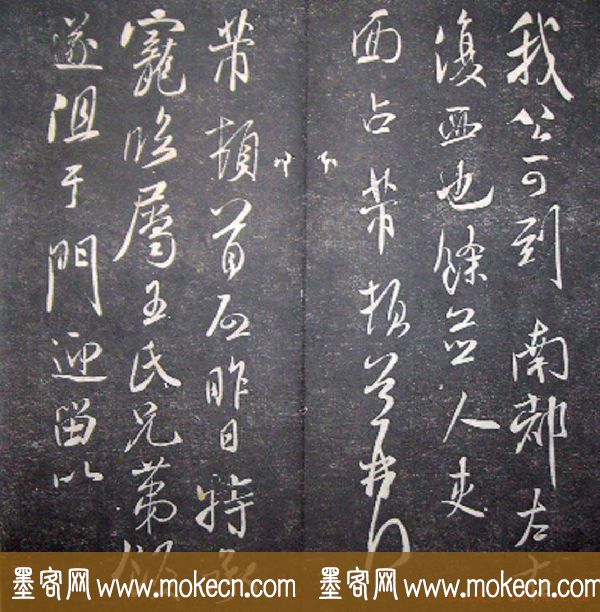 我公可到南都左
復西也餘晶人夹
西占芾頓首
芾頓首啟昨日特承
寵臨屬王氏兄弟
遂阻于門迎留以
墨客网 www.mokecn.com 墨客网 www.mokecn.com